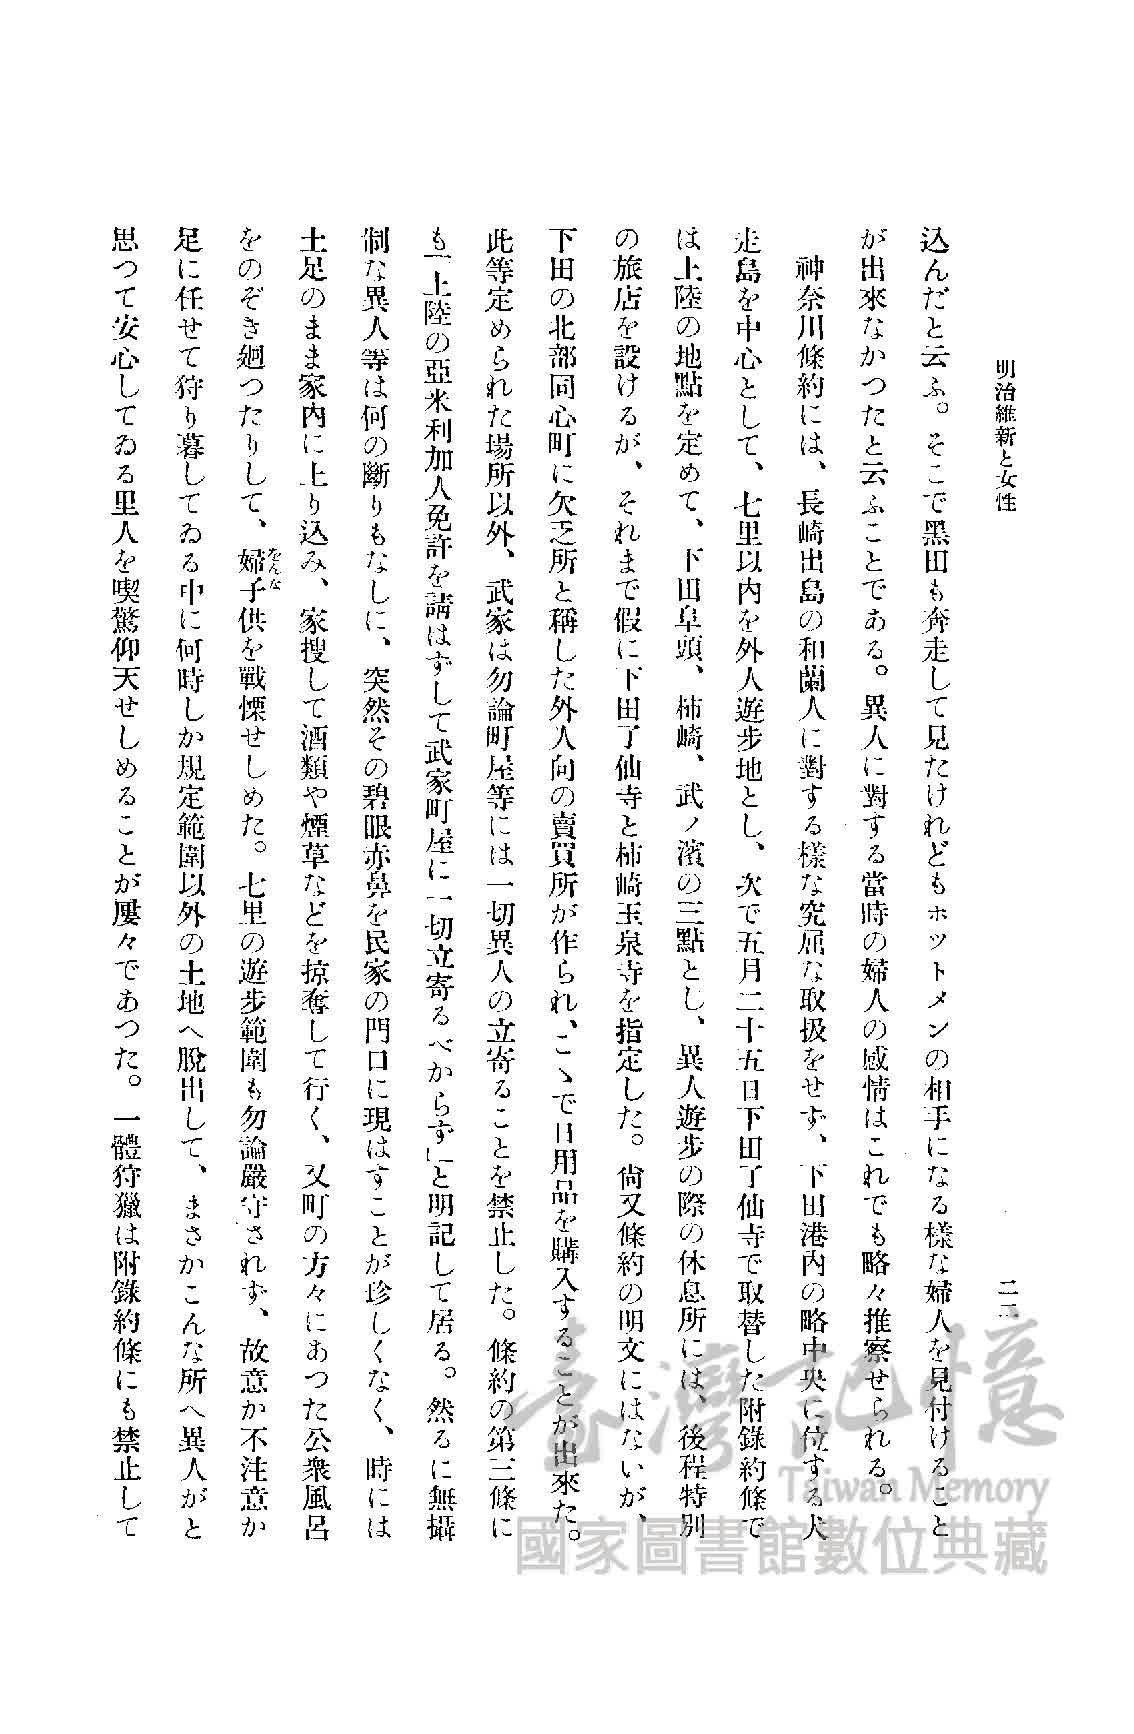 明治維新と女性
二二
込んだと云ふ。そこで黑田も奔走して見たけれどもホツトメンの相手になる樣な婦人を見付けること
が出來なかつたと云ふことである。異人に對する當時の婦人の感情はこれでも略々推察せられる。
神奈川條約には、長崎出島の和蘭人に對する樣な究屈な取扱をせず、下田港內の略中央に位する犬
走島を中心として、七里以內を外人遊步地とし、次で五月二十五日下田了仙寺で取替した附錄約條で
は上陸の地點を定めて、下田阜頭、柿崎、武ノ濱の三點とし、異人遊步の際の休息所には、後程特別
の旅店を設けるが、それまで假に下田了仙寺と柿崎玉泉寺を指定した。尙又條約の明文にはないが、
下田の北部同心町に欠乏所と稱した外人向の賣買所が作られ、こゝで日用品を購入することが出來た。
此等定められた場所以外、武家は勿論町屋等には一切異人の立寄ることを禁止した。條約の第三條に
も「上陸の亞米利加人免許を請はずして武家町屋に一切立寄るべからず」と明記して居る。然るに無攝
制な異人等は何の斷りもなしに、突然その碧眼赤鼻を民家の門口に現はすことが珍しくなく、時には
土足のまま家內に上り込み、家搜して酒類や煙草などを掠奪して行く、又町の方々にあつた公衆風呂
をのぞき廻つたりして、婦子供を戰慄せしめた。七里の遊步範圍も勿論嚴守されず、故意か不注意か
をんな
足に任せて狩り暮してゐる中に何時しか規定範圍以外の土地へ脫出して、まさかこんな所へ異人がと
思つて安心してゐる里人を喫驚仰天せしめることが屢々であつた。一體狩獵は附錄約條にも禁止して
臺灣記憶
Taiwan Memory
國家圖書館數位典藏